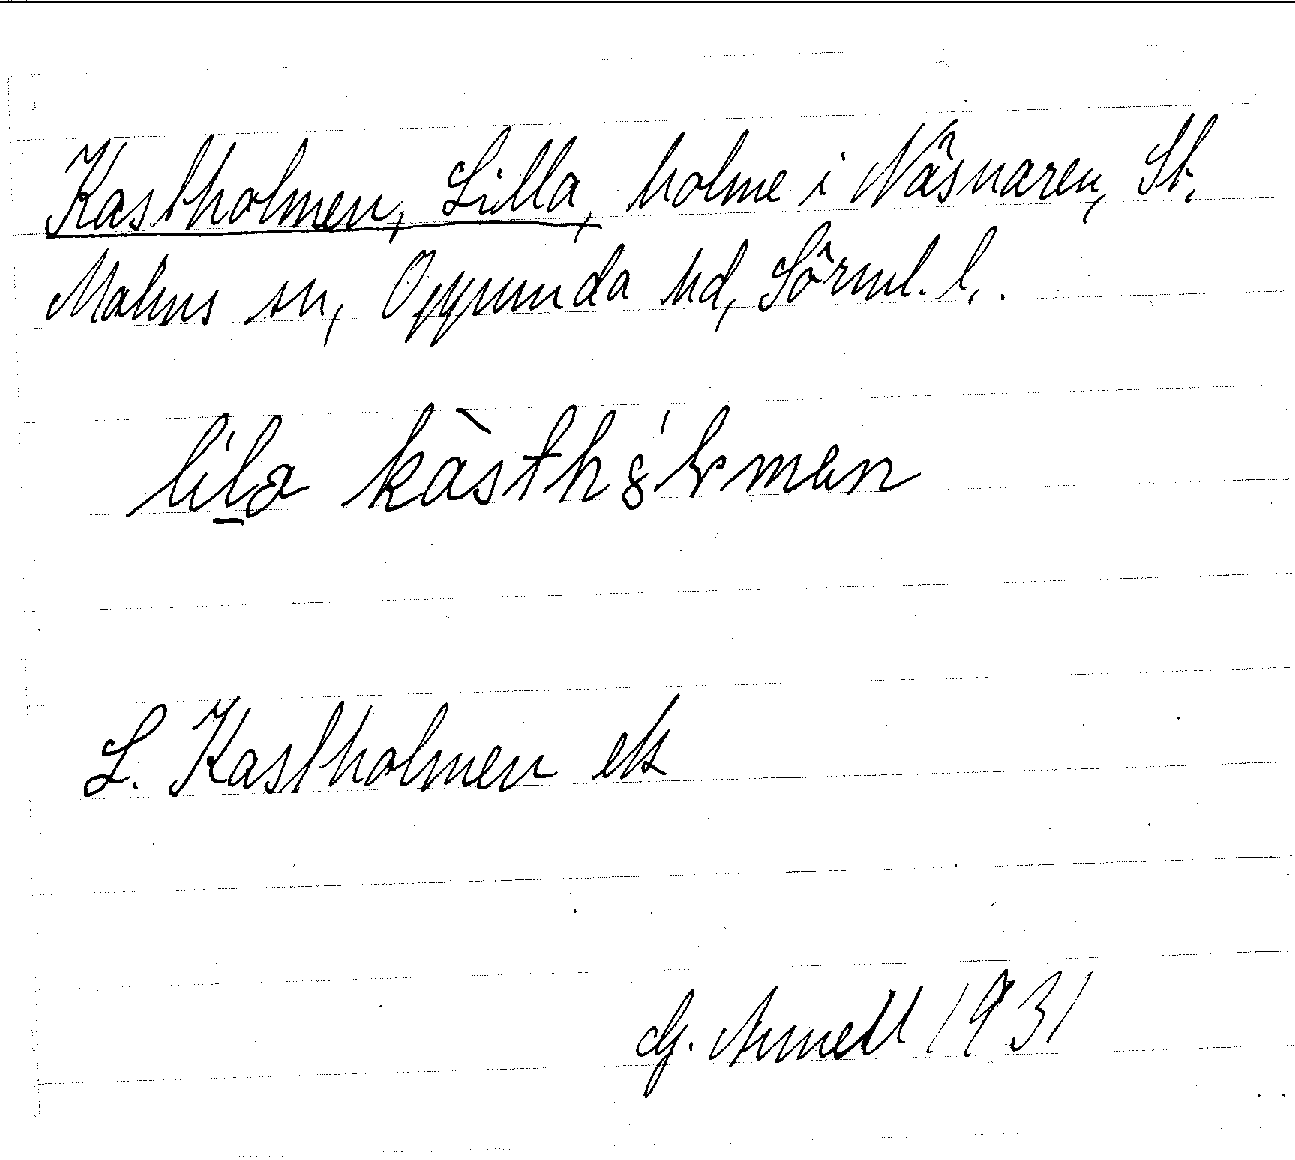 Kastholmen, Lilla, holme i Näsnaren, St.
Malms sn, Oppunda hd, Sörml. l.
lila kàsthȯlmen
L. Kastholmen ek
G. Arnell 1931